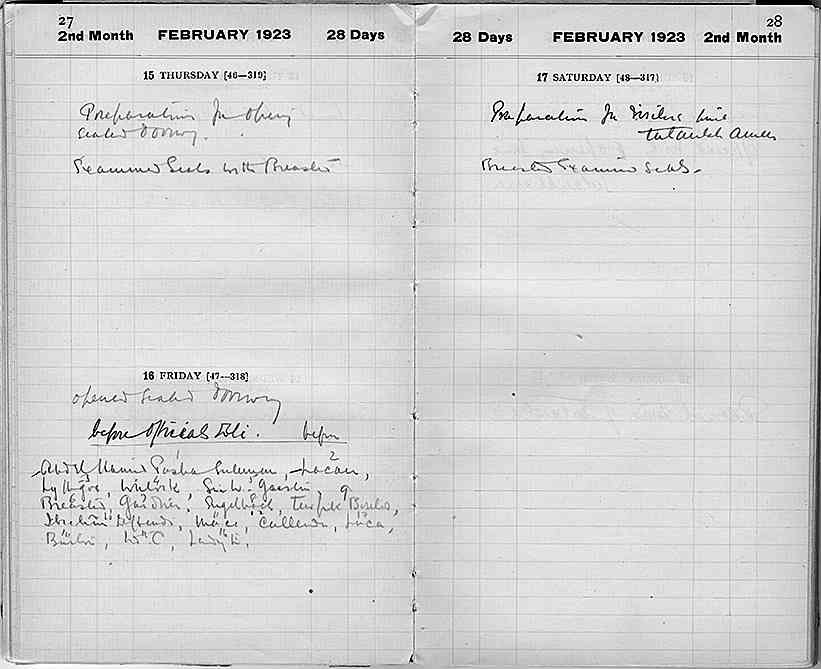 27
2nd Month FEBRUARY 1923 28 Days
15 THURSDAY [46—319]
Preparations for opening
sealed doorway.
Examined Seals with Breasted
16 FRIDAY [47—318]
opened sealed doorway
before officials
Abd el Hamid Pasha Suleman, Lacau,
Lythgoe, Winlock, Sir W. Garstin,
Breasted, Gardiner, Engelbach,
Ibrahim Effendi, Mace, Callender,
Burton, Ld C, Lady E.
28
28 Days FEBRUARY 1923 2nd Month
17 SATURDAY [48—317]
Preparation for visitors
Breasted Examined Seals.